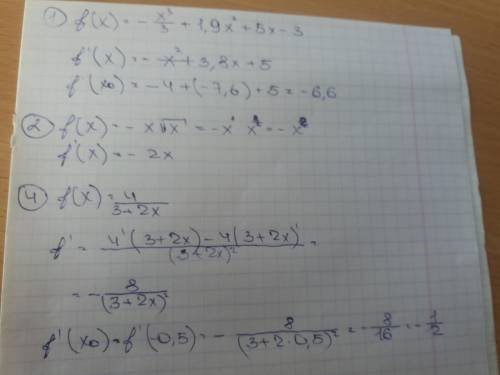 ① f(x) = -x³/3 + 1,9x² + 5x - 3
f'(x) = -x² + 3,8x + 5
f'(x₀) = -4 + (-7,6) + 5 = -6,6
② f(x) = -x√x = -x¹ x¹ = -x²
f'(x) = -2x
④ f(x) = 4/(3+2x)
f' = (4'(3+2x) - 4(3+2x)')/(3+2x)² =
= -8/(3+2x)²
f'(x₀) = f'(-0,5) = -8/(3+2·0,5)² = -8/16 = -1/2